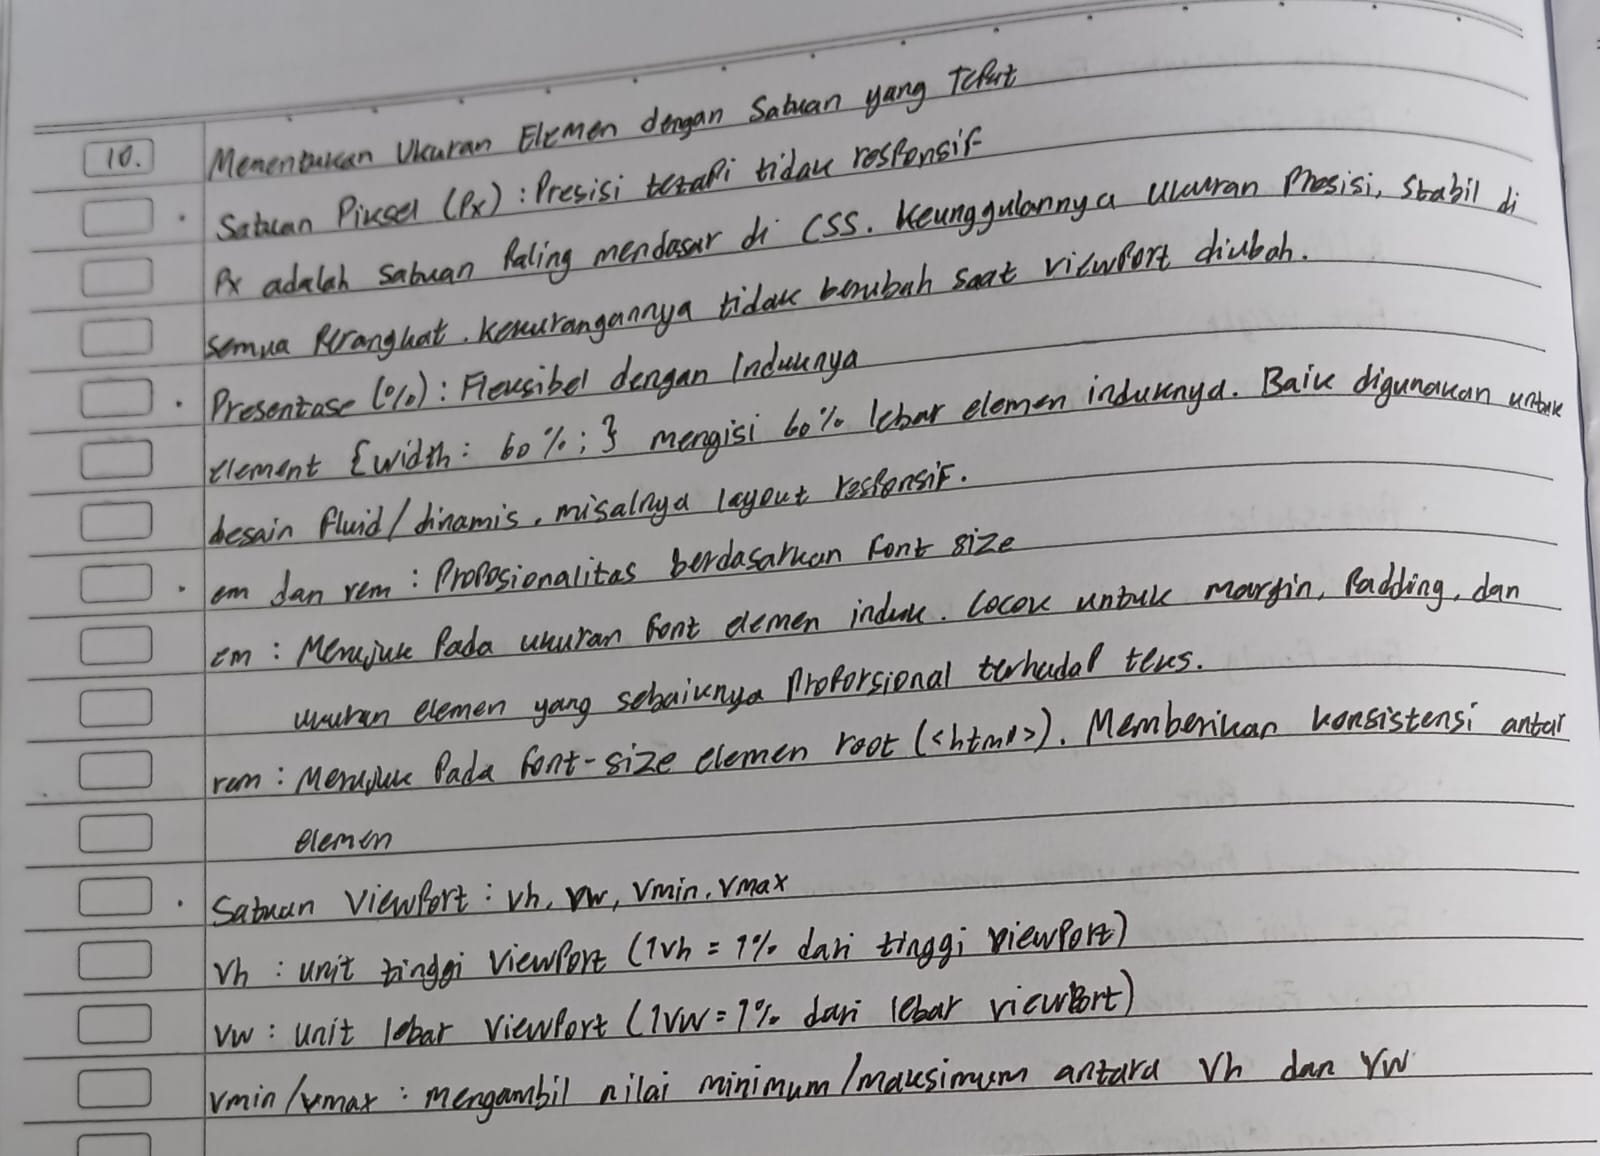 10. Menentukan Ukuran Elemen dengan Satuan yang Tepat
· Satuan Piksel (Px) : Presisi tetapi tidak responsif
Px adalah satuan Paling mendasar di CSS. Keunggulannya ukuran Presisi, stabil di
semua Perangkat. Kekurangannya tidak berubah saat viewport diubah.
· Presentase (%) : Fleksibel dengan Induknya
element {width : 60 % ; } mengisi 60% lebar elemen induknya. Baik digunakan untuk
desain fluid/dinamis, misalnya layout responsif.
· em dan rem : Proposionalitas berdasarkan font size
em : Merujuk Pada ukuran font elemen induk. Cocok untuk margin, Padding, dan
ukuran elemen yang sebaiknya Proporsional terhadap teks.
rem : Merujuk Pada font-size elemen root (<html>). Memberikan konsistensi antar
elemen
· Satuan Viewport : vh, vw, vmin, vmax
vh : unit tinggi viewport (1vh = 1% dari tinggi viewport)
vw : unit lebar viewport (1vw = 1% dari lebar viewport)
vmin/vmax : mengambil nilai minimum/maksimum antara vh dan vw